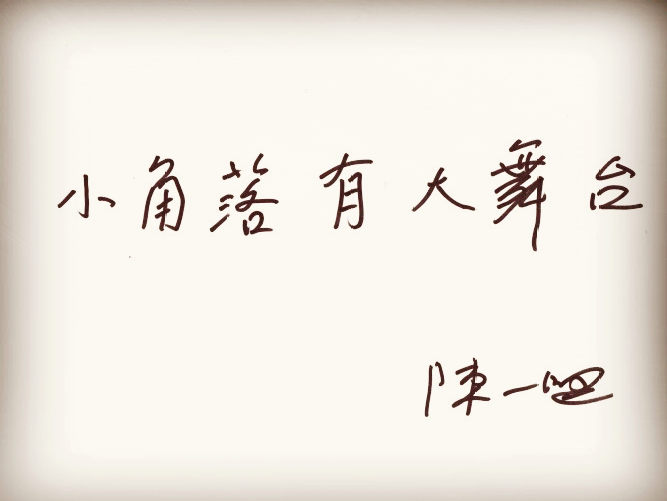 小角落有大舞台
陳一